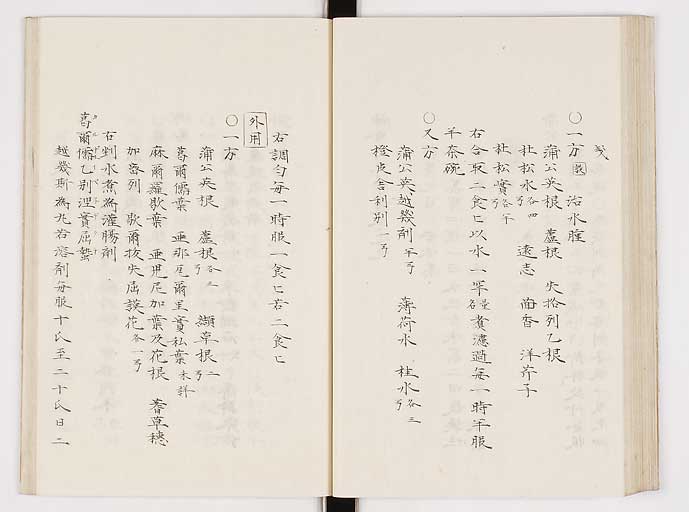 〇一方 治水腫
蒲公英根 蘆根 失拾列乙根
杜松木 各四 遠志 茴香 洋芥子
杜松實 各半
右合取二食匕以水一半 煮濾過每一時半服
半茶碗
〇又方
蒲公英越幾劑 半 薄荷水 桂水 各三
橙皮舎利別 一
右調勻每一時服一食匕若二食匕
外用
〇一方
蒲公英根 蘆根 各二 纈草根 二
葛爾儒葉 亜那尼爾里實私葉 未詳
麻爾羅歇葉 亜尼加葉及花根 蓍草穗
加密列 歇爾抜失屈謨花 各一
右剉水煮為灌腸劑
葛爾儒乙別涅實屈蟄
越幾斯為丸若溶劑每服十氏至二十氏日二